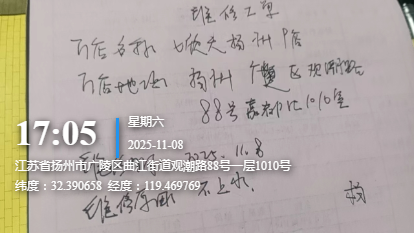 维修工单
门店名称 扬州店
门店地址 扬州 区观潮路
88号 1010室
17:05
星期六
2025-11-08
江苏省扬州市广陵区曲江街道观潮路88号一层1010号
2025.11.8
纬度：32.390658 经度：119.469769
维修原因 不上水